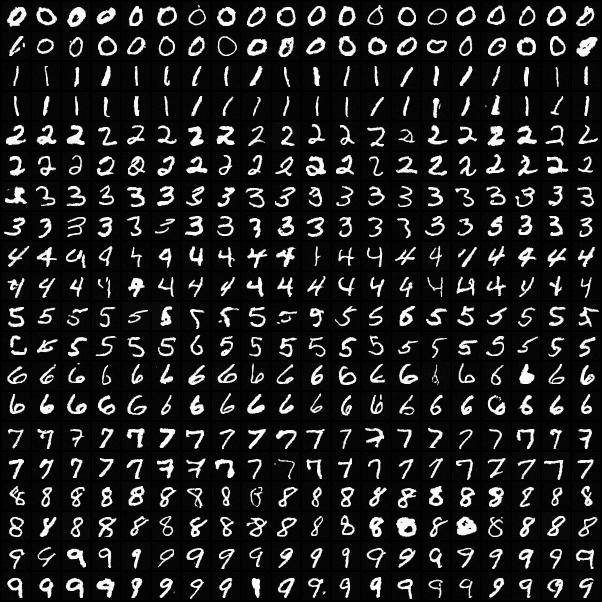 0 0 0 0 0 0 0 0 0 0 0 0 0 0 0 0 0 0 0 0
0 0 0 0 0 0 0 0 0 0 0 0 0 0 0 0 0 0 0
1 1 1 1 1 1 1 1 1 1 1 1 1 1 1 1 1 1 1 1
1 1 1 1 1 1 1 1 1 1 1 1 1 1 1 1 1 1 1 1
2 2 2 2 2 2 2 2 2 2 2 2 2 2 2 2 2 2 2 2
2 2 2 2 2 2 2 2 2 2 2 2 2 2 2 2 2 2 2 2
3 3 3 3 3 3 3 3 3 3 3 3 3 3 3 3 3 3 3
3 3 3 3 3 3 3 3 3 3 3 3 3 3 3 3 3 3 3 3
4 4 4 4 4 4 4 4 4 4 4 4 4 4 4 4 4 4 4
4 4 4 4 4 4 4 4 4 4 4 4 4 4 4 4 4 4 4 4
5 5 5 5 5 5 5 5 5 5 5 5 5 5 5 5 5 5 5
5 5 5 5 5 5 5 5 5 5 5 5 5 5 5 5 5 5
6 6 6 6 6 6 6 6 6 6 6 6 6 6 6 6 6 6 6 6
6 6 6 6 6 6 6 6 6 6 6 6 6 6 6 6 6 6 6 6
7 7 7 7 7 7 7 7 7 7 7 7 7 7 7 7 7 7 7 7
7 7 7 7 7 7 7 7 7 7 7 7 7 7 7 7 7 7 7 7
8 8 8 8 8 8 8 8 8 8 8 8 8 8 8 8 8 8 8 8
8 8 8 8 8 8 8 8 8 8 8 8 8 8 8 8 8 8 8 8
9 9 9 9 9 9 9 9 9 9 9 9 9 9 9 9 9 9 9 9
9 9 9 9 9 9 9 9 9 9 9 9 9 9 9 9 9 9 9